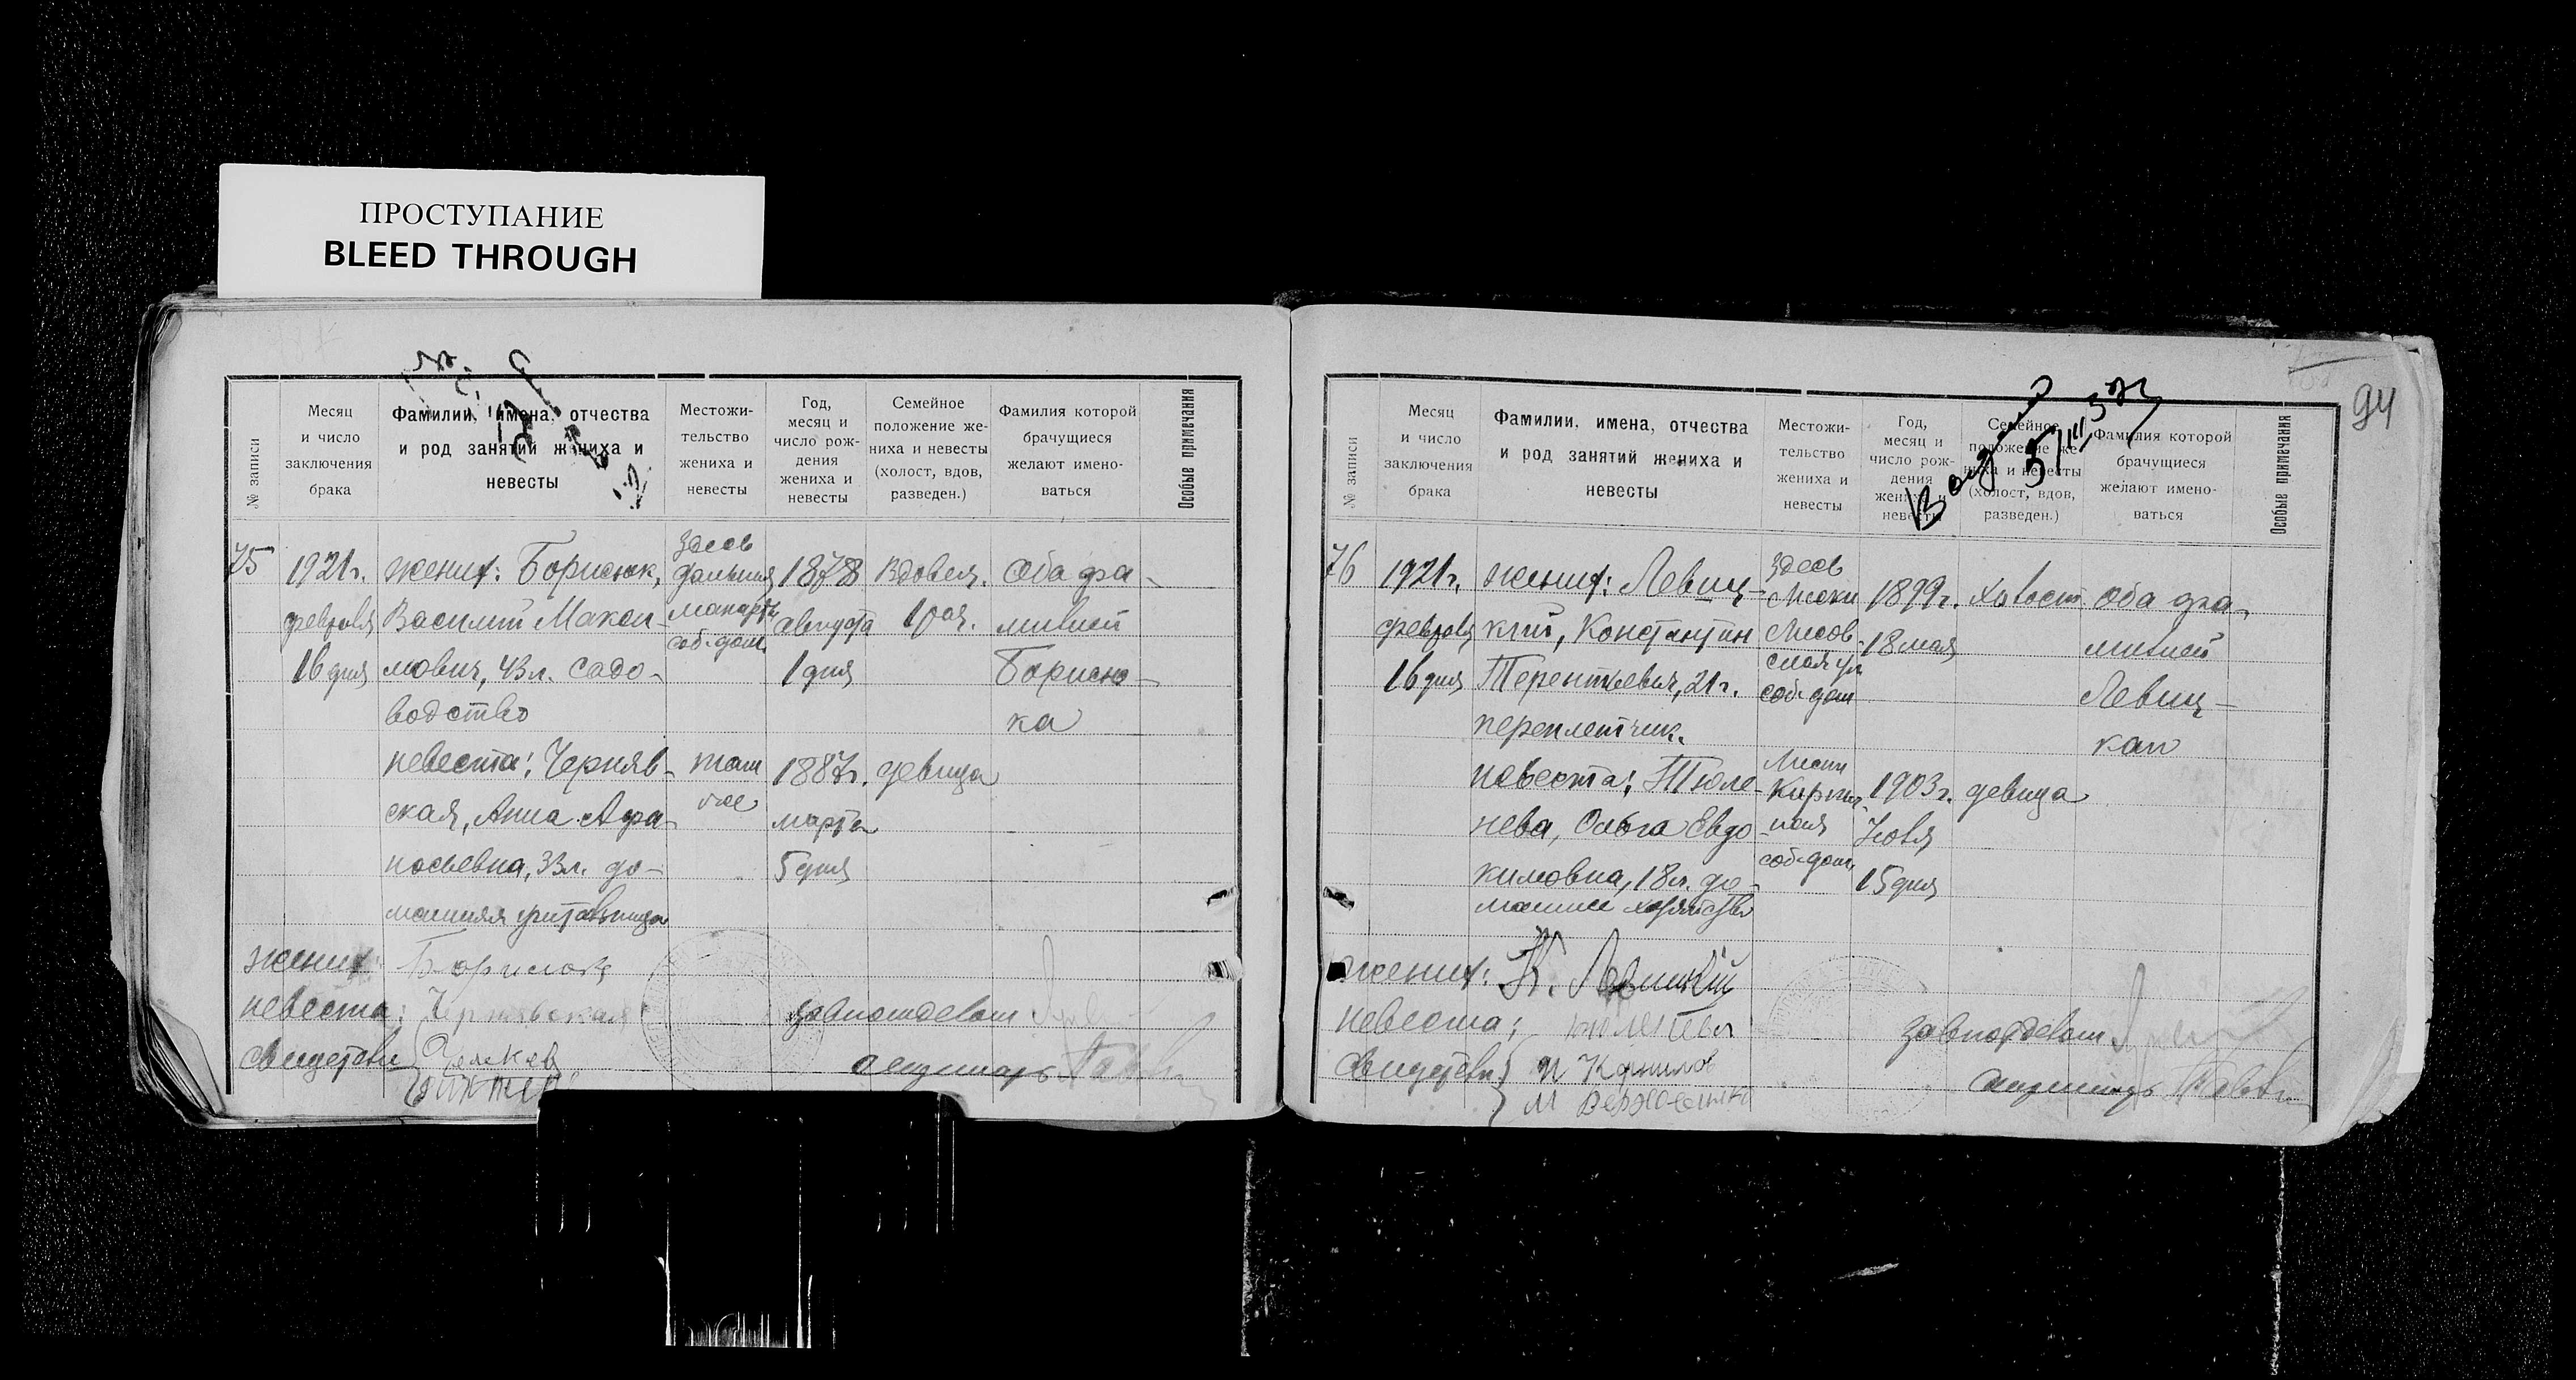 ПРОСТУПАНИЕ
BLEED THROUGH
№ записи
Месяц и число заключения брака
Фамилии, имена, отчества и род занятий жениха и невесты
Местожительство жениха и невесты
Год, месяц и число рождения жениха и невесты
Семейное положение жениха и невесты (холост, вдов, разведен.)
Фамилия которой брачущиеся желают именоваться
Особые примечания
75
1921г.
февраля
16 дня
жених: Борисюк,
Василий Макси-
мович, 43л. садо-
водство
здесь
дальния
собс. дом.
1878
августа
1 дня
Вдовец.
1 бр.
Оба фа-
милией
Борисю-
ка
невеста: Черняв-
ская, Анна Афа-
насьевна, 33л. до-
машняя учительница
там
же
1887г.
марта
5 дня
девица
жених: Борисюк
невеста: Чернявская
Свидетели
завпотделом
секретарь
94
№ записи
Месяц и число заключения брака
Фамилии, имена, отчества и род занятий жениха и невесты
Местожительство жениха и невесты
Год, месяц и число рождения жениха и невесты
Семейное положение жениха и невесты (холост, вдов, разведен.)
Фамилия которой брачущиеся желают именоваться
Особые примечания
76
1921г.
февраля
16 дня
жених: Левиц-
кий, Константин
Терентьевич, 21г.
переплетчик.
здесь
соб. дом
1899г.
18 мая
холост
Оба фа-
милией
Левиц-
кая
невеста: Тюле-
нева, Ольга Евдо-
кимовна, 18л. до-
машнее хозяйство
соб. дом,
1903г.
15 дня
девица
жених: К. Левицкий
невеста: Тюленева
Свидетели
завпотделом
секретарь